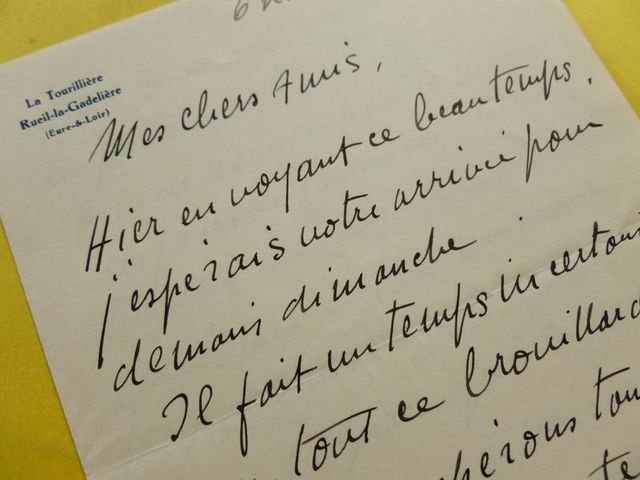 La Tourillière
Rueil-la-Gadelière
(Eure-&-Loir)
Mes chers Amis,
Hier en voyant ce beau temps,
j'espérais votre arrivée pour
demain dimanche.
Il fait un temps incertain
tout ce brouillard